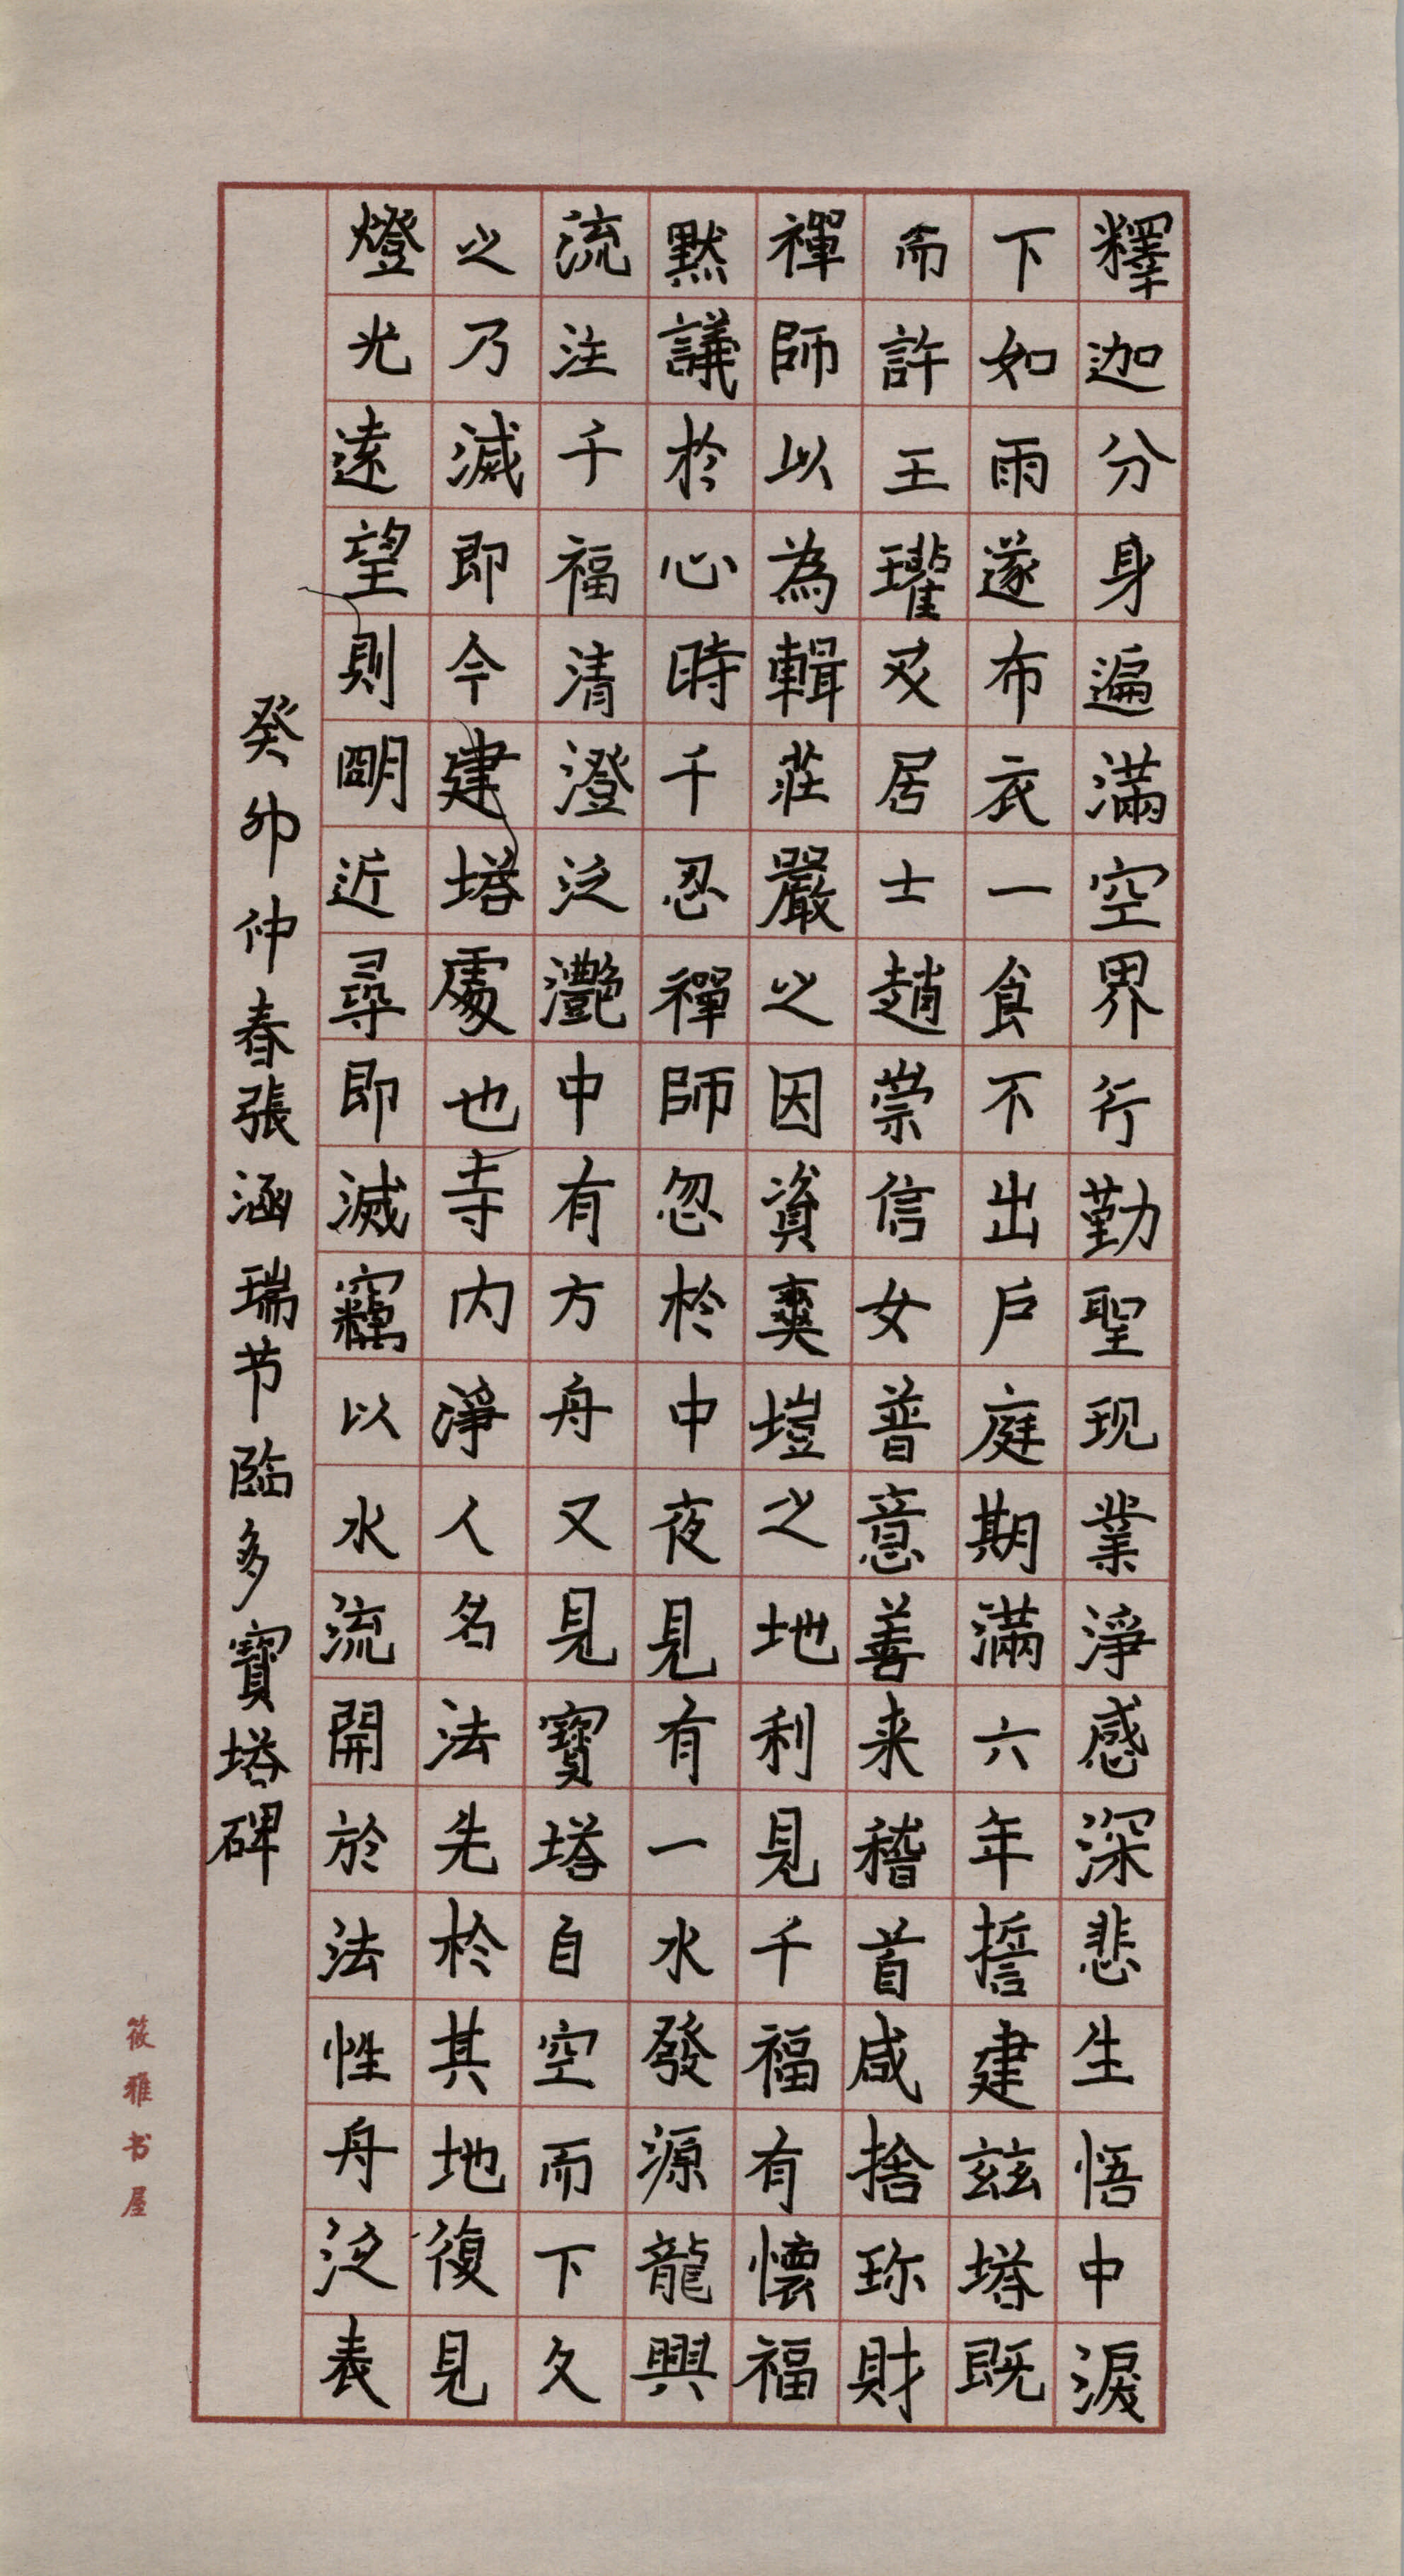 釋迦分身遍滿空界行勤聖现業淨感深悲生悟中淚
下如雨遂布衣一食不出戶庭期滿六年誓建兹塔既
而許王瓘及居士趙崇信女普意善来稽首咸捨珎財
禪師以為輯莊嚴之因資爽塏之地利見千福有懷福
黙議於心時千忍禪師忽於中夜見有一水發源龍興
流注千福清澄泛灧中有方舟又見寶塔自空而下久
之乃滅即今建塔處也寺内淨人名法先於其地復見
燈光遠望則朙近尋即滅竊以水流開於法性舟泛表
癸卯仲春張涵瑞节臨多寶塔碑
筱雅书屋